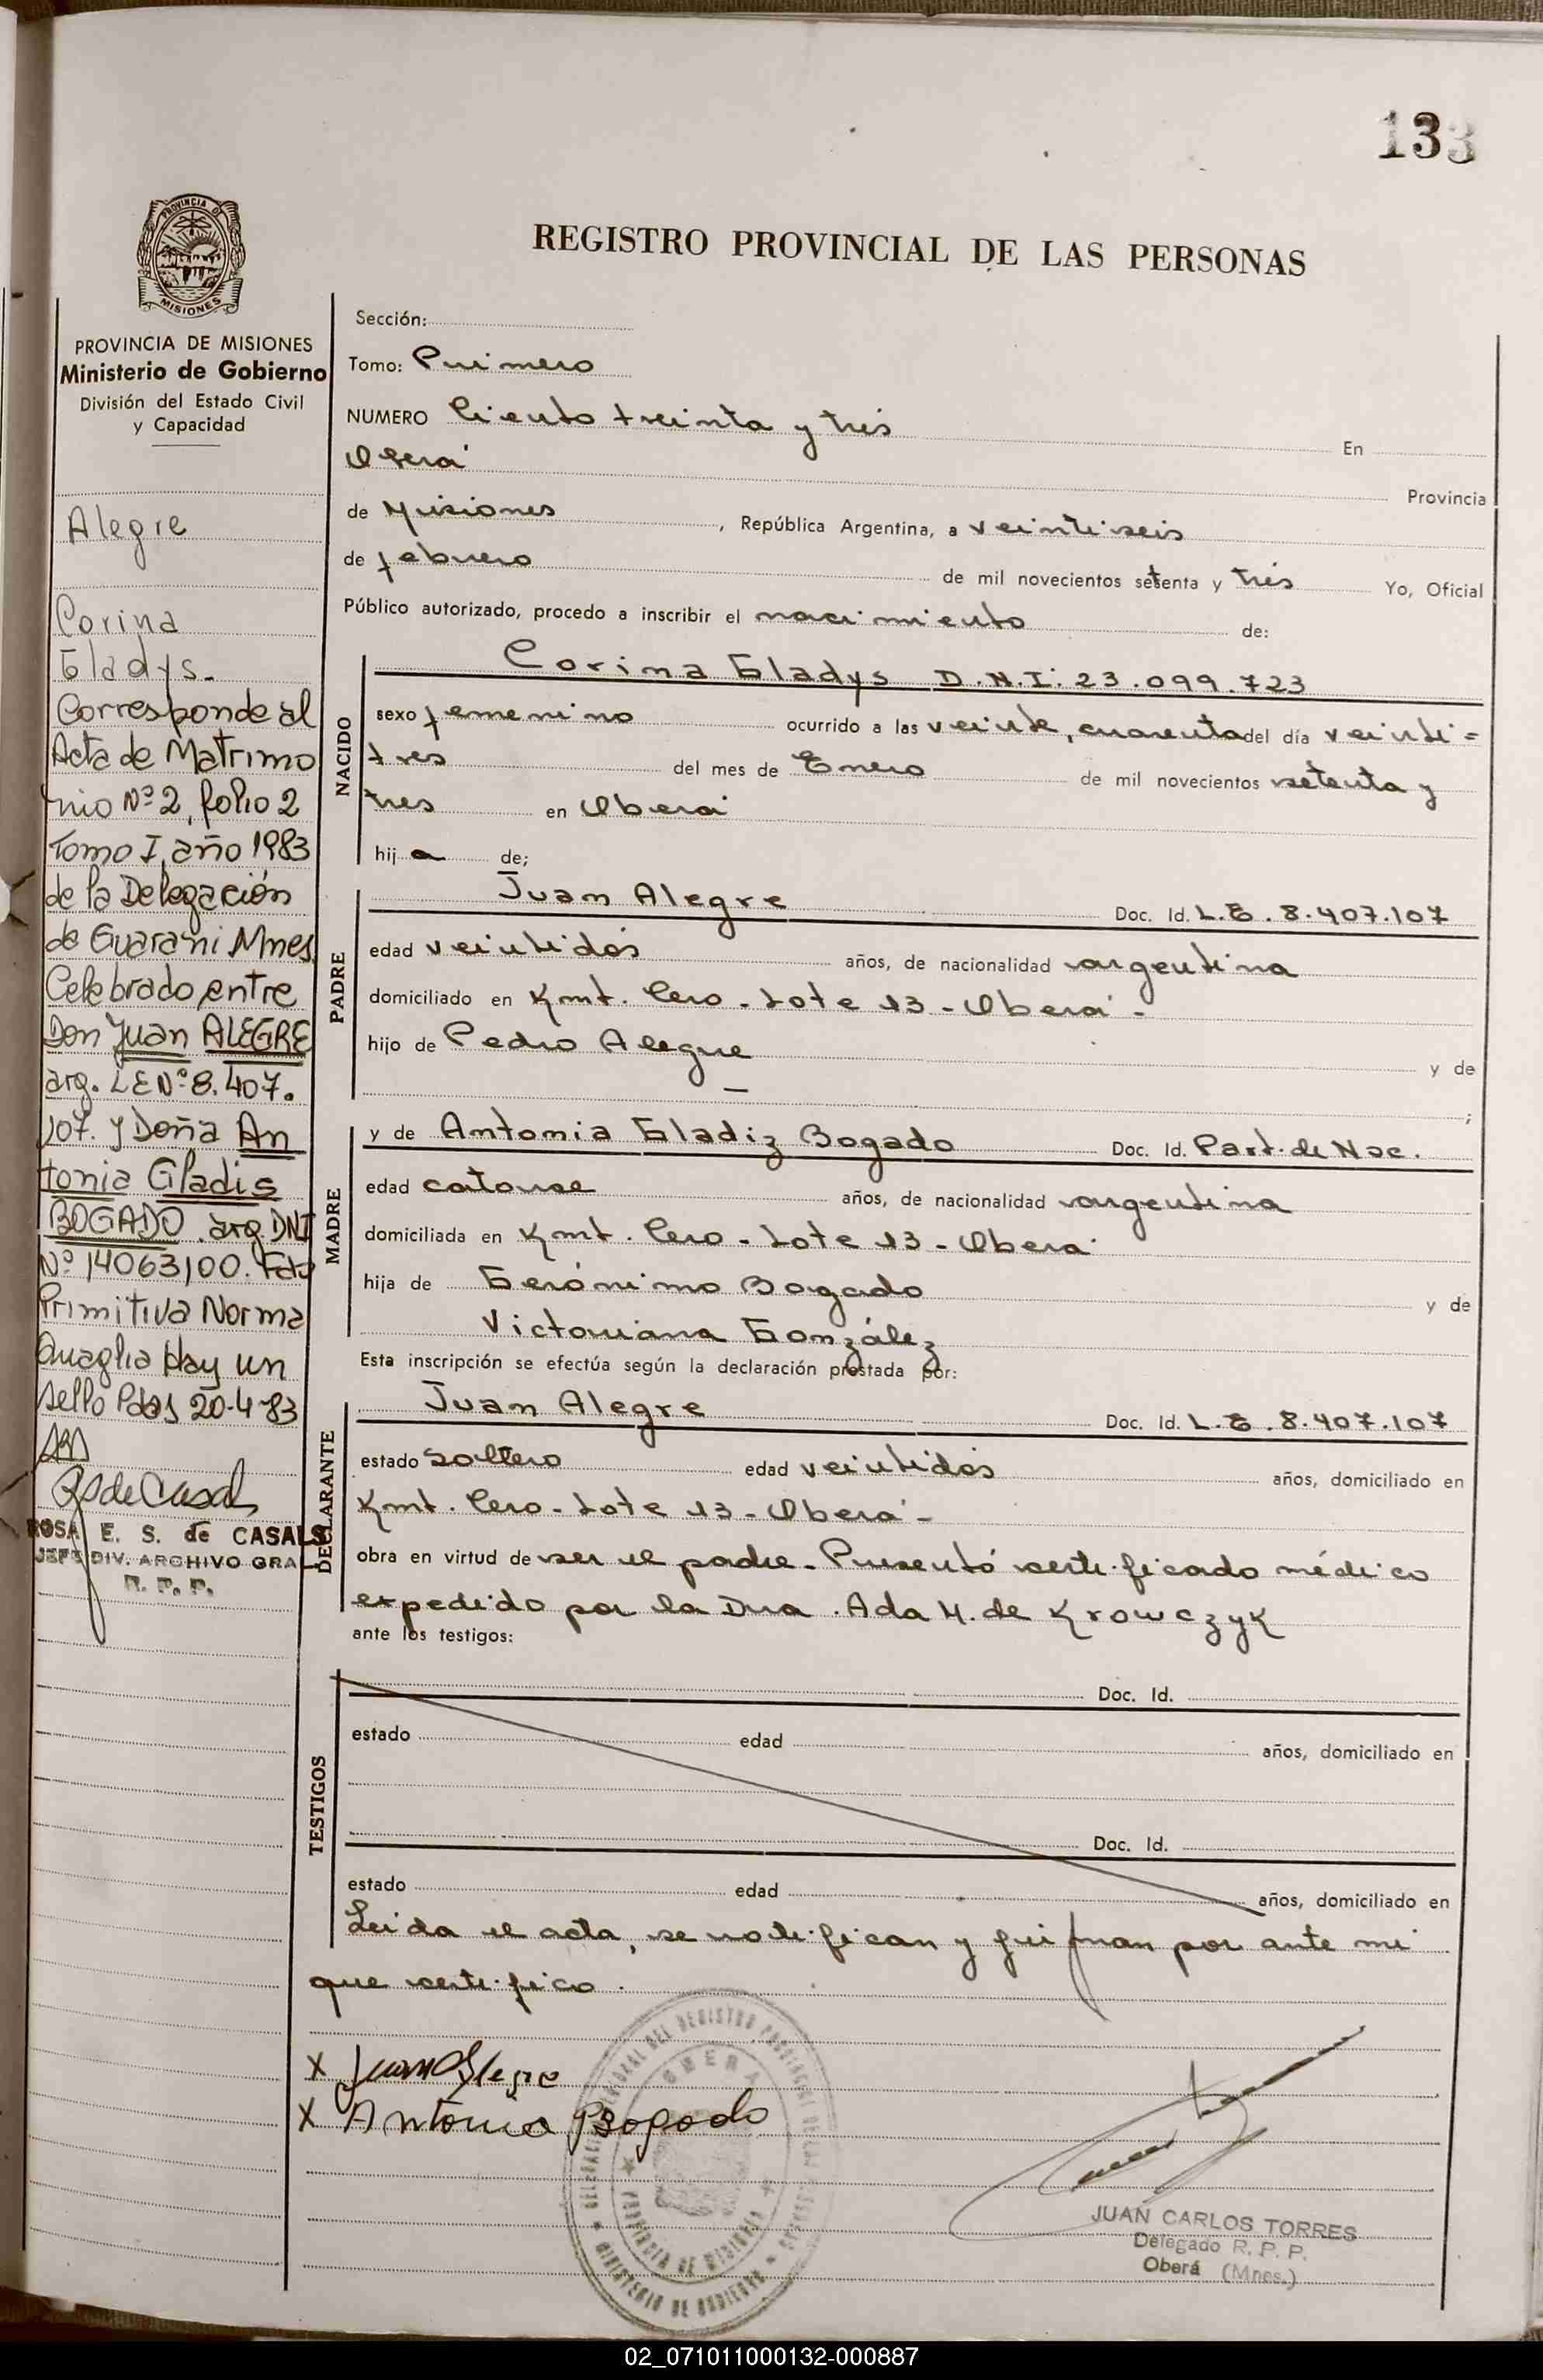 133
PROVINCIA DE
MISIONES
REGISTRO PROVINCIAL DE LAS PERSONAS
PROVINCIA DE MISIONES
Ministerio de Gobierno
División del Estado Civil
y Capacidad
Alegre
Corina
Gladys.
Corresponde al
Acta de Matrimo
nio Nº 2, folio 2
Tomo I, año 1983
de la Delegación
de Guarani Mnes
Celebrado entre
Don Juan ALEGRE
arg. LE Nº 8.407.
107. y Doña An
tonia Gladis
BOGADO. arg. DNI
Nº 14063100. Fdo
Primitiva Norma
Quaglia Hay un
sello Pdas 20-4-83
RSdeCasals
ROSA E. S. de CASALS
JEFE DIV. ARCHIVO GRAL
R. P. P.
Sección:
Tomo: Primero
NUMERO Ciento treinta y trés En
Oberá Provincia
de Misiones, República Argentina, a veintiseis
de febrero de mil novecientos setenta y trés Yo, Oficial
Público autorizado, procedo a inscribir el nacimiento de:
NACIDO
Corina Gladys D.N.I: 23.099.723
sexo femenino ocurrido a las veinte, cuarenta del día veinti=
tres del mes de Enero de mil novecientos setenta y
tres en Oberá
hij a de;
PADRE
Juan Alegre Doc. Id. L.E. 8.407.107
edad veintidós años, de nacionalidad argentina
domiciliado en Kmt. Cero - Lote 13 - Oberá -
hijo de Pedro Alegre y de
— ;
MADRE
y de Antonia Gladiz Bogado Doc. Id. Part. de Nac.
edad catorse años, de nacionalidad argentina
domiciliada en Kmt. Cero - Lote 13 - Oberá
hija de Gerónimo Bogado y de
Victoriana González
Esta inscripción se efectúa según la declaración prestada por:
DECLARANTE
Juan Alegre Doc. Id. L.E. 8.407.107
estado soltero edad veintidós años, domiciliado en
Kmt. Cero - Lote 13 - Oberá -
obra en virtud de ser el padre - Presentó sertificado médico
expedido por la Dra. Ada H. de Krowczyk
ante los testigos:
TESTIGOS
Doc. Id.
estado edad años, domiciliado en
Doc. Id.
estado edad años, domiciliado en
Leida el acta, se notifican y firman por ante mi
que sertifico.
X Juan Alegre
X Antonia Bogado
OBERA
PROVINCIA DE MISIONES
MINISTERIO DE GOBIERNO
JUAN CARLOS TORRES
Delegado R. P. P.
Oberá (Mnes.)
02_071011000132-000887